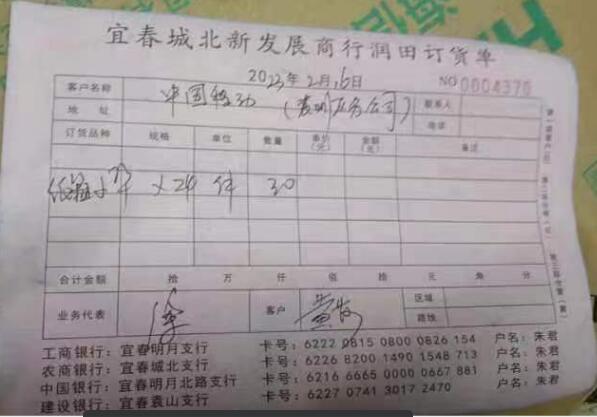 宜春城北新发展商行润田订货单
2023年2月16日 NO 0004370
客户名称 中国移动 联系人
地址 电话
订货品种 规格 单位 数量 单价(元) 金额(元) 备注
×24 件 30
合计金额 拾 万 仟 佰 拾 元 角 分
业务代表 客户 区域
路线
工商银行：宜春明月支行 卡号：6222 0815 0800 0826 154 户名：朱君
农商银行：宜春城北支行 卡号：6226 8200 1490 1548 713 户名：朱君
中国银行：宜春明月北路支行 卡号：6216 6665 0000 0667 881 户名：朱君
建设银行：宜春袁山支行 卡号：6227 0741 3017 2470 户名：朱君